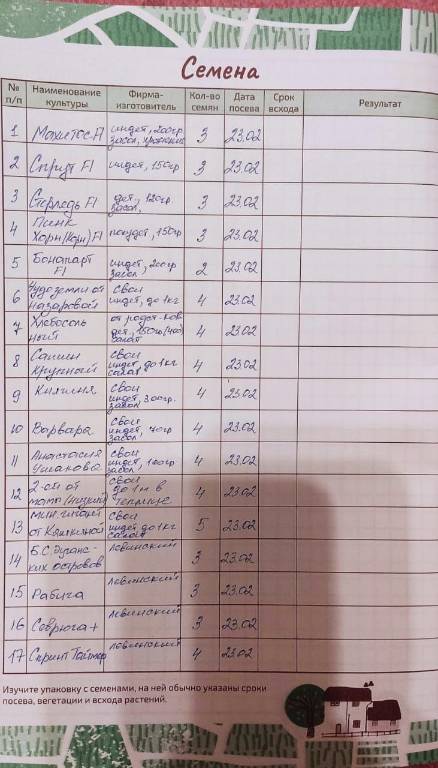 Семена
№ п/п Наименование культуры Фирма-изготовитель Кол-во семян Дата посева Срок всхода Результат
1 Махитос F1 индет, 200гр. засол, 3 23.02
2 Спрут F1 индет, 150гр 3 23.02
3 F1 дет, 120гр засол, 3 23.02
4 Пинк Хорн (Корн) F1 полудет, 150гр 3 23.02
5 Бонапарт F1 индет, 200гр засол 2 23.02
6 Чудо земли от Назаровой Свои индет, до 1кг 4 23.02
7 Хлебосольный от родст-ков дет, 150гр (400) салат 4 23.02
8 Крупный Свои индет, до 1кг салат 4 23.02
9 Княгиня Свои индет, 300гр. засол 4 23.02
10 Варвара Свои индет, 70гр засол, 4 23.02
11 Анастасия Ушакова Свои индет, 100гр засол, 4 23.02
12 2-ой от мамы (низкий) Свои до 1м в теплице 4 23.02
13 от Кяшкиной Свои индет до 1кг салат 5 23.02
14 Б.С. островов Левинский 3 23.02
15 Рабига Левинский 3 23.02
16 Севрюга + Левинский 3 23.02
17 Спринт Таймер Левинский 4 23.02
Изучите упаковку с семенами, на ней обычно указаны сроки
посева, вегетации и всхода растений.